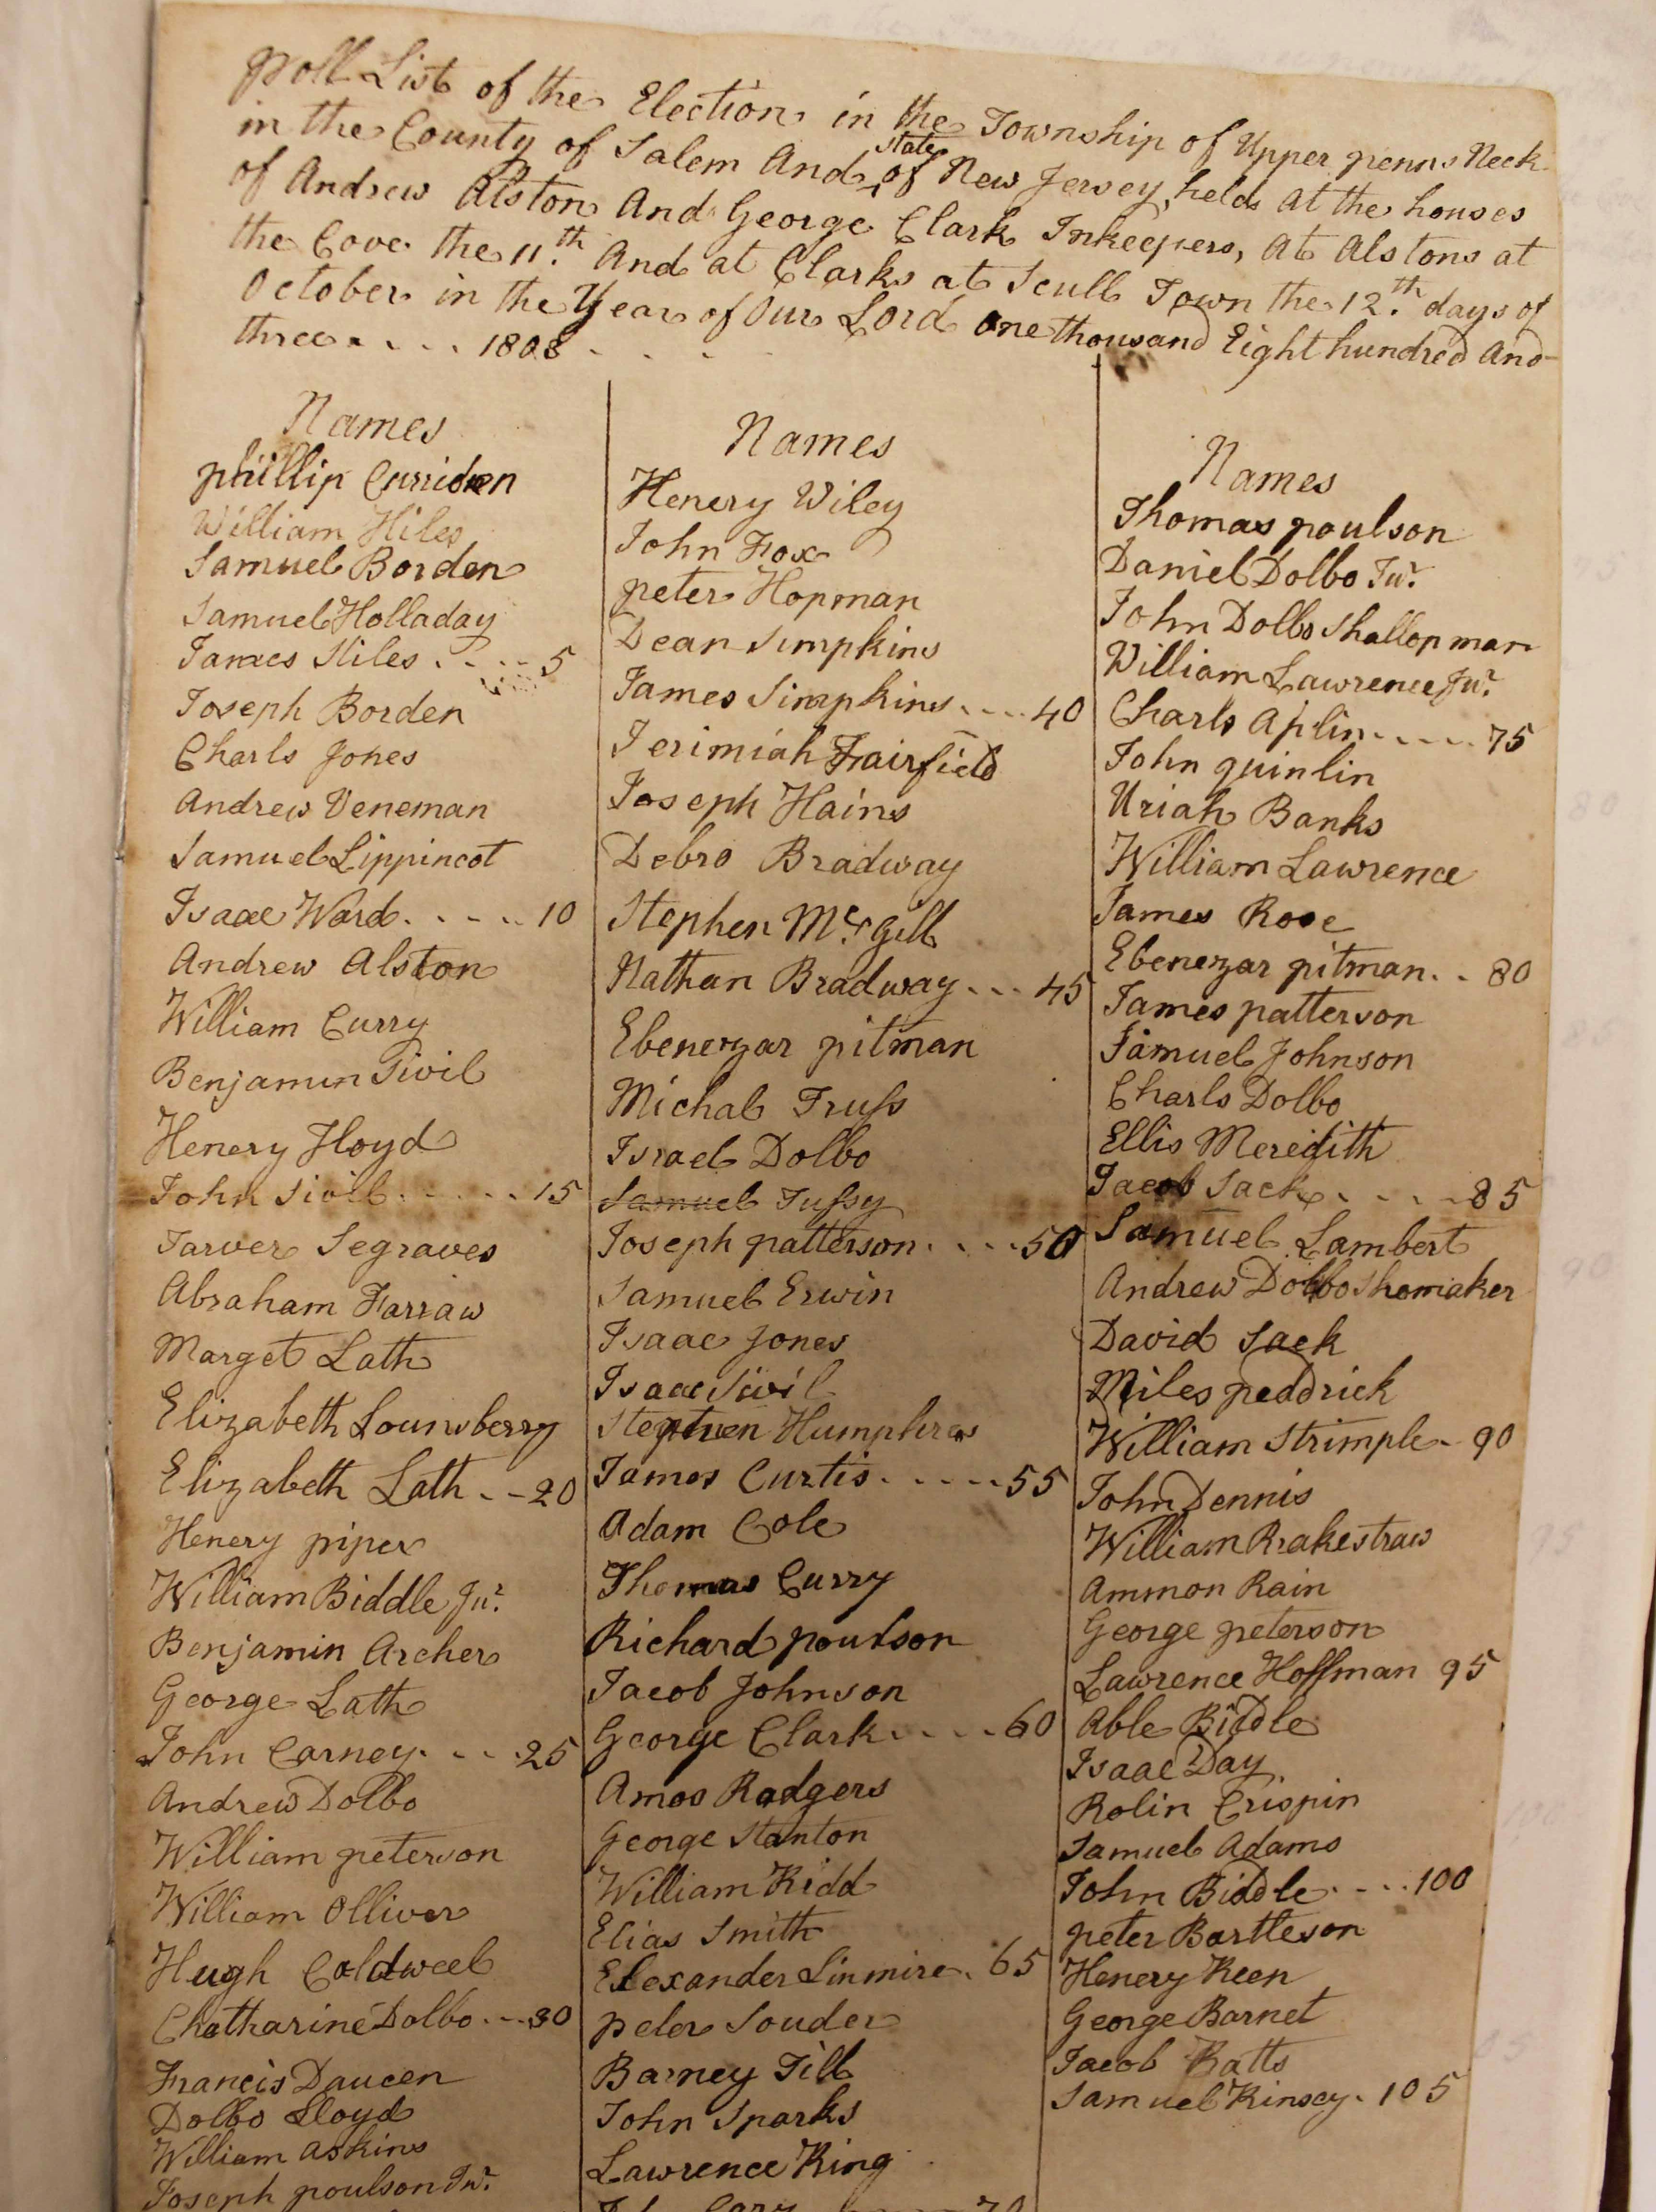 Poll List of the Election in the Township of Upper penns Neck
in the County of Salem And state of New Jersey, held At the houses
of Andrew Alston And George Clark Inkeepers, At Alstons at
the Cove the 11.th And at Clarks at Scull Town the 12.th days of
October in the Year of Our Lord one thousand Eight hundred And
three - - - - 1803 - - -
Names
phillip Curriden
William Hiles
Samuel Borden
Samuel Holladay
James Stiles - - - - 5
Joseph Borden
Charls Jones
Andrew Veneman
Samuel Lippincot
Isaac Ward - - - - 10
Andrew Alston
William Curry
Benjamin Sivil
Henery Floyd
John Sivil - - - - - 15
Tarver Segraves
Abraham Farraw
Marget Lath
Elizabeth Lounsberry
Elizabeth Lath - - 20
Henery piper
William Biddle Jur.
Benjamin Archer
George Lath
John Carney - - - 25
Andrew Dolbo
William peterson
William Olliver
Hugh Coldweel
Chatharine Dolbo - - - 30
Francis Daucen
Dolbo Lloyd
William Askins
Joseph poulson Jur.
Names
Henery Wiley
John Fox
peter Hopman
Dean Simpkins
James Simpkins - - - 40
Jerimiah Fairfield
Joseph Hains
Debro Bradway
Stephen Mc.gill
Nathan Bradway - - - 45
Ebenezar pitman
Michal Truss
Israel Dolbo
Samuel Tussy
Joseph patterson - - - - 50
Samuel Erwin
Isaac Jones
Isaac Sivil
Stephen Humphres
James Curtis - - - - - 55
Adam Cole
Thomas Curry
Richard poulson
Jacob Johnson
George Clark - - - - 60
Amos Radgers
George Stanton
William Kidd
Elias Smith
Elexander Linmire - 65
peter Souder
Barney Till
John Sparks
Lawrence King
70
Names
Thomas poulson
Daniel Dolbo Jur.
John Dolbo Shallop man
William Lawrence Jur.
Charls Aplin - - - - - 75
John quinlin
Uriah Banks
William Lawrence
James Rose
Ebenezar pitman - - 80
James patterson
Samuel Johnson
Charls Dolbo
Ellis Meredith
Jacob Sack - - - - 85
Samuel Lambert
Andrew Dolbo Shomaker
David Sack
Miles peddrick
William Strimple - 90
John Dennis
William Rrakestraw
Ammon Rain
George peterson
Lawrence Hoffman 95
Able Biddle
Isaac Day
Rolin Crispin
Samuel Adams
John Biddle - - - - 100
peter Bartleson
Henery Keen
George Barnet
Jacob Batts
Samuel Kinsey - 105